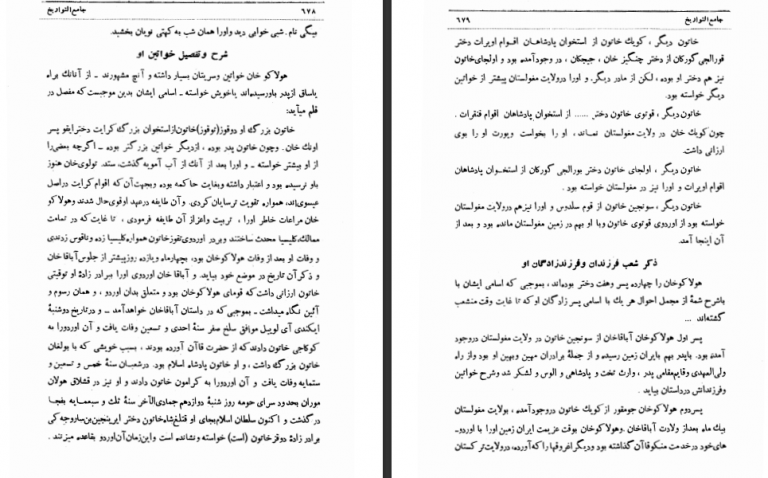 جامع التواریخ
۶۷۸
بیگی نام . شبی خوابی دید و او را همان شب به کهتی نویان بخشید.
شرح و تفصیل خواتین او
هولاکو خان خواتین و سریتان بسیار داشته و آنچ مشهورند ـ از آنانک براه
یاساق از پدر باو رسیده‌اند یا خویش خواسته ـ اسامی ایشان بدین موجبست که مفصل در
قلم میآید:
خاتون بزرگ او دوقوز (توقوز) خاتون از استخوان بزرگ کرایت دختر ایقو پسر
اونک خان. و چون خاتون پدر بوده ، از دیگر خواتین بزرگتر بوده ـ اگرچه بعضی را
از او پیشتر خواسته ـ و او را بعد از آنک از آب آمویه گذشت، ستد. تولوی خان هنوز
باو نرسیده بود و اعتبار داشته و بغایت حاکمه بوده و بجهت آن که اقوام کرایت در اصل
عیسوی‌اند، همواره تقویت ترسایان کردی. و آن طایفه در عهد او قوی حال شدند و هولاکو
خان مراعات خاطر او را ، تربیت و اعزاز آن طایفه فرمودی ، تا غایت که در تمامت
ممالک، کلیسیا محدث ساختند و بر در اوردوی تقوز خاتون همواره کلیسیا زده و ناقوس زدندی
و وفات او بعد از وفات هولاکو خان بود، بچهار ماه و یازده روز پیشتر از جلوس آباقا خان
و ذکر آن تاریخ در موضع خود بیاید. و آباقا خان اوردوی او را ببرادر زادۀ او توقیتی
خاتون ارزانی داشت که قومای هولاکو خان بود و متعلق بدان اوردو ، و همان رسوم و
آئین نگاه میداشت ـ بموجبی که در داستان آباقا خان خواهد آمد ـ و در تاریخ دوشنبۀ
ایکندی آی لوییل موافق سلخ صفر سنۀ احدی و تسعین وفات یافت و آن اوردو را به
کوکاجی خاتون دادند که از حضرت قاآن آورده بودند ، بسبب خویشی که با بولغان
خاتون بزرگ داشت ، و او خاتون پادشاه اسلام بود. در شعبان سنۀ خمس و تسعین و
ستمایه وفات یافت و آن اوردو را به کرامون خاتون دادند و او نیز در قشلاق هولان
موران بحدود سرای جومه روز شنبۀ دوازدهم جمادی الآخر سنۀ ثلث و سبعمایه بفجا
در گذشت و اکنون سلطان اسلام بجای او قتلغشاه خاتون دختر ایرینجین بن ساروجه کی
برادر زادۀ دوقز خاتون (است) خواسته و نشانده است و این زمان آن اوردو بقاعده میزنند .
جامع التواریخ
۶۷۹
خاتون دیگر ، کویک خاتون از استخوان پادشاهان اقوام اویرات دختر
قورالجی گورکان از دختر چنگیز خان ، جیجکان ، در وجود آمده بود و اولجای خاتون
نیز هم دختر او بوده ، لکن از مادر دیگر. و او را در ولایت مغولستان پیشتر از خواتین
دیگر خواسته بود.
خاتون دیگر ، قوتوی خاتون دختر ...... از استخوان پادشاهان اقوام قنقرات .
چون کویک خان در ولایت مغولستان نماند، او را بخواست ویورت او را بوی
ارزانی داشت.
خاتون دیگر ، اولجای خاتون دختر بورالجی گورکان از استخوان پادشاهان
اقوام اویرات و او را نیز در مغولستان خواسته بود .
خاتون دیگر ، سونجین خاتون از قوم سلدوس و او را نیز هم در ولایت مغولستان
خواسته بود از اوردوی قوتوی خاتون و با او بهم در زمین مغولستان مانده بود و بعد از
آن اینجا آمد.
ذکر شعب فرزندان و فرزندزادگان او
هولاکو خان را چهارده پسر و هفت دختر بوده‌اند ، بموجبی که اسامی ایشان با
باشرح شمۀ از مجمل احوال هر یک با اسامی پسر زادگان او که تا غایت وقت منشعب
گشته‌اند ...
پسر اول هولاکو خان آباقا خان از سونجین خاتون در ولایت مغولستان در وجود
آمده بود. با پدر بهم بایران زمین رسیده و از جملۀ برادران مهین و بهین او بود و از راه
ولی العهدی و قایم مقامی پدر ، وارث تخت و پادشاهی و الوس و لشکر شد و شرح خواتین
و فرزندانش در داستان بیاید .
پسر دوم هولاکو خان جومقور از کویک خاتون در وجود آمده ، بولایت مغولستان
بیک ماه بعد از ولادت آباقا خان . و هولاکو خان بوقت عزیمت ایران زمین او را با اوردو-
های خود در خدمت منکو قاآن گذاشته بود و دیگر اغروقها را که آورده، در ولایت ترکستان